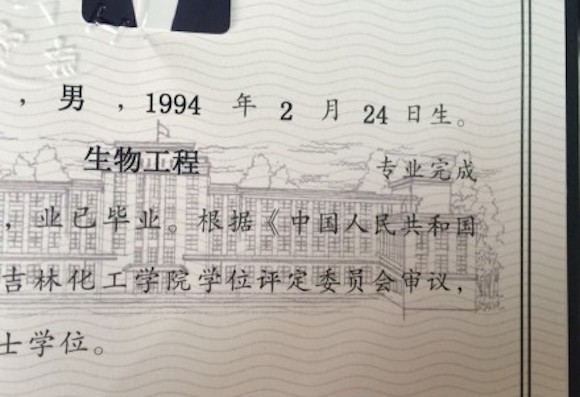 ，男，1994 年 2 月 24 日生。
生物工程 专业完成
，业已毕业。根据《中国人民共和国
吉林化工学院学位评定委员会审议，
士学位。